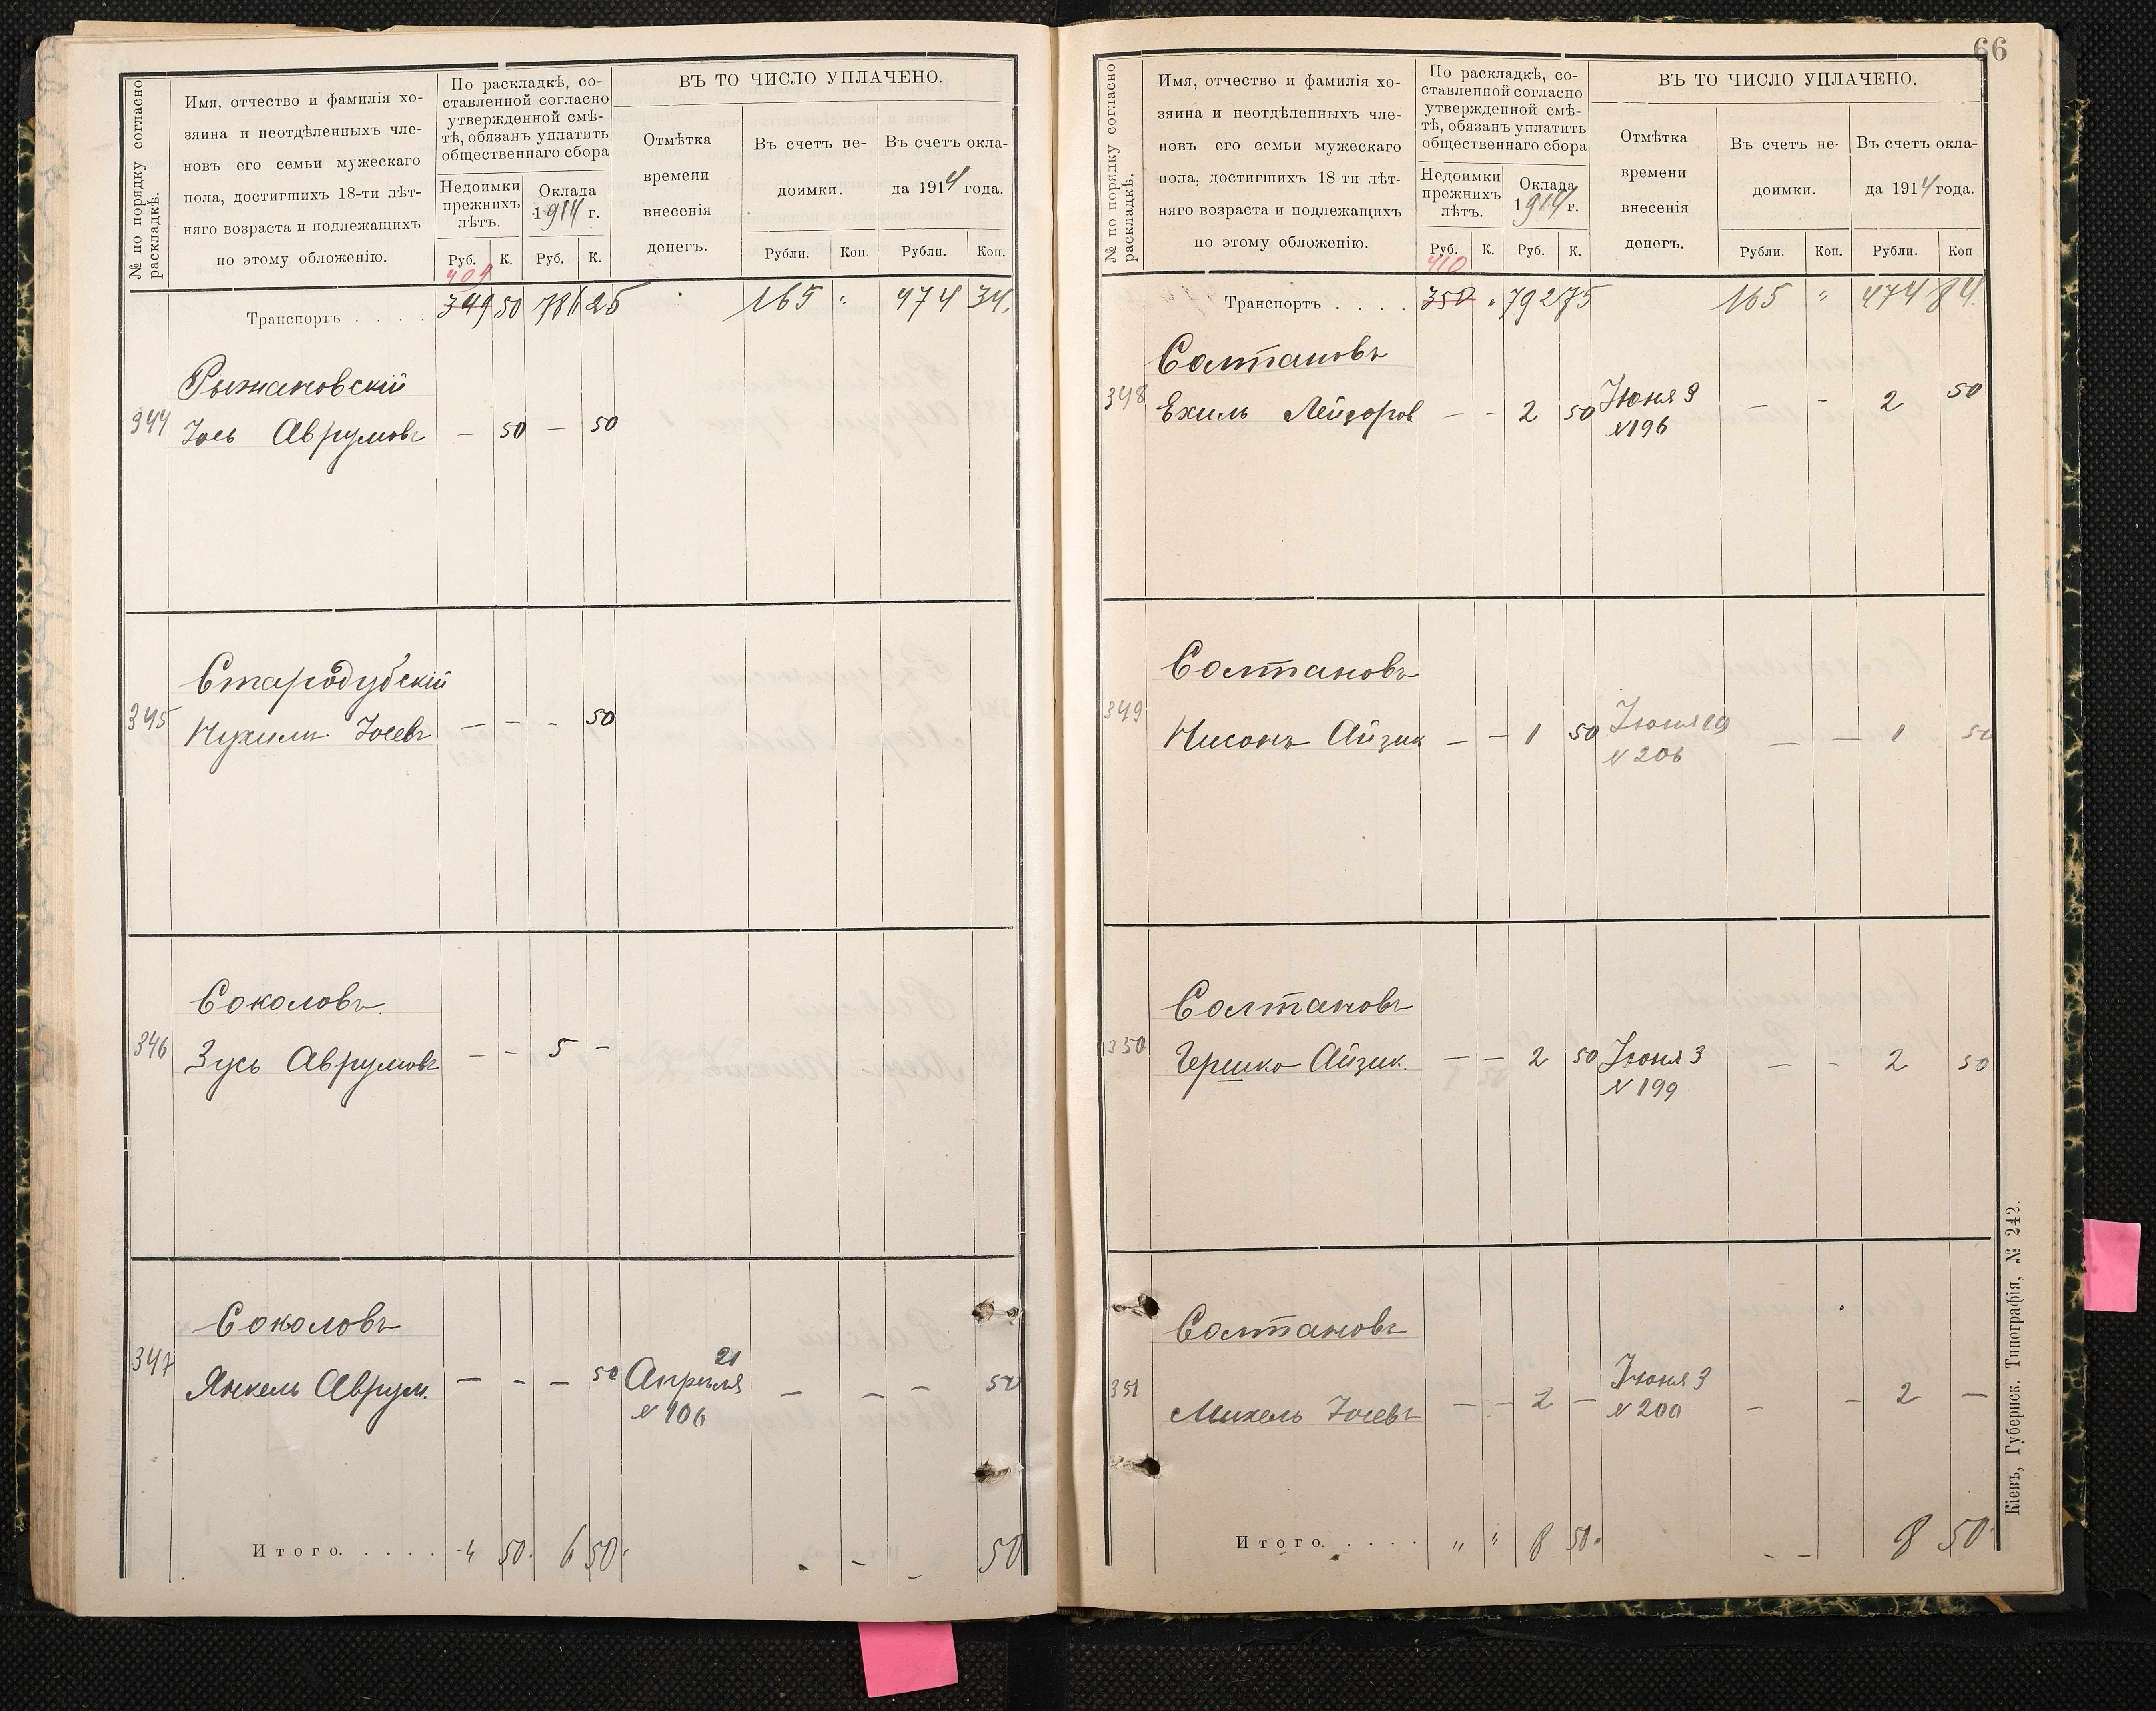 № по порядку согласно
раскладкѣ.
Имя, отчество и фамилія хо-
зяина и неотдѣленныхъ чле-
новъ его семьи мужескаго
пола, достигшихъ 18-ти лѣт-
няго возраста и подлежащихъ
по этому обложенію.
По раскладкѣ, со-
ставленной согласно
утвержденной смѣ-
тѣ, обязанъ уплатить
общественнаго сбора
Недоимки
прежнихъ
лѣтъ.
Оклада
1914 г.
Руб. К. Руб. К.
ВЪ ТО ЧИСЛО УПЛАЧЕНО.
Отмѣтка
времени
внесенія
денегъ.
Въ счетъ не-
доимки.
Въ счетъ окла-
да 1914 года.
Рубли. Коп Рубли. Коп.
409
Транспортъ . . . . 349 50 786 25 165 " 474 34.
Рыжановскій
344 Іось Аврумовъ — 50 — 50
Стародубскій
345 Нухимъ Іосевъ — — - 50
Соколовъ
346 Зусь Аврумовъ — - 5 -
Соколовъ
347 Янкель Аврум. — - — 50 Апрѣля 21 — — — 50
№ 106
Итого. . . . . - 50. 6 50. - - 50
66
№ по порядку согласно
раскладкѣ.
Имя, отчество и фамилія хо-
зяина и неотдѣленныхъ чле-
новъ его семьи мужескаго
пола, достигшихъ 18 ти лѣт-
няго возраста и подлежащихъ
по этому обложенію.
По раскладкѣ, со-
ставленной согласно
утвержденной смѣ-
тѣ, обязанъ уплатить
общественнаго сбора
Недоимки
прежнихъ
лѣтъ.
Оклада
1914 г.
Руб. К. Руб. К.
ВЪ ТО ЧИСЛО УПЛАЧЕНО.
Отмѣтка
времени
внесенія
денегъ.
Въ счетъ не-
доимки.
Въ счетъ окла-
да 1914 года.
Рубли. Коп. Рубли. Коп
410
Транспортъ . . . . 350 " 792 75 165 " 474 84.
Солтановъ
348 Ехиль Лейзоров — - 2 50 Іюня 3 — - 2 50
№ 196
Солтановъ
349 Нисонъ Айзик — — 1 50 Іюня 19 — — 1 50
№ 206
Солтановъ
350 Гершко Айзик. — — 2 50 Іюня 3 — - 2 50
№ 199
Солтановъ
351 Михель Іосевъ — - 2 — Іюня 3 — - 2 —
№ 200
Итого. . . . . " " 8 50. - - 8 50.
Кіевъ, Губернск. Типографія, № 242.